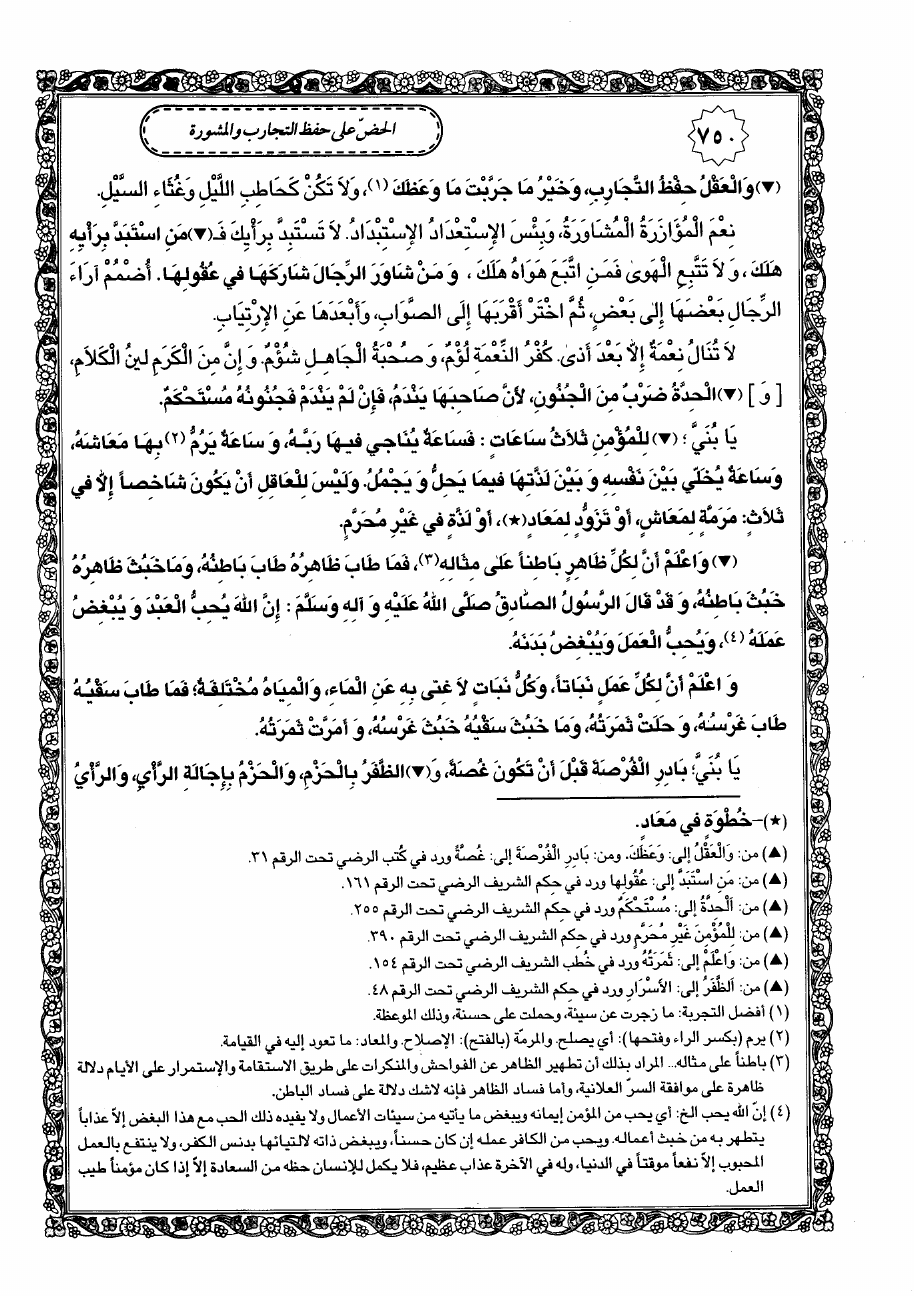 ٧٥٠
الحضّ على حفظ التجارب والمشورة
(▼) وَالْعَقْلُ حِفْظُ التَّجَارِبِ، وَخَيْرُ مَا جَرَّبْتَ مَا وَعَظَكَ (١)، وَلاَ تَكُنْ كَحَاطِبِ اللَّيْلِ وَغُثَاءِ السَّيْلِ.
نِعْمَ الْمُؤَازَرَةُ الْمُشَاوَرَةُ، وَبِئْسَ الاِسْتِعْدَادُ الاِسْتِبْدَادُ. لاَ تَسْتَبِدَّ بِرَأْيِكَ فَـ(▼)مَنِ اسْتَبَدَّ بِرَأْيِهِ
هَلَكَ، وَ لاَ تَتَّبِعِ الْهَوىٰ فَمَنِ اتَّبَعَ هَوَاهُ هَلَكَ ، وَ مَنْ شَاوَرَ الرِّجَالَ شَارَكَهَا في عُقُولِهَا. أُضْمُمْ آرَاءَ
الرِّجَالِ بَعْضَهَا إِلىٰ بَعْضٍ، ثُمَّ اخْتَرْ أَقْرَبَهَا إِلَى الصَّوَابِ، وَأَبْعَدَهَا عَنِ الاِرْتِيَابِ.
لاَ تُنَالُ نِعْمَةٌ إِلاَّ بَعْدَ أَذىً. كُفْرُ النِّعْمَةِ لُؤْمٌ، وَ صُحْبَةُ الْجَاهِلِ شُؤْمٌ. وَ إِنَّ مِنَ الْكَرَمِ لينُ الْكَلاَمِ،
[ وَ ] (▼)الْحِدَّةُ ضَرْبٌ مِنَ الْجُنُونِ، لأَنَّ صَاحِبَهَا يَنْدَمُ، فَإِنْ لَمْ يَنْدَمْ فَجُنُونُهُ مُسْتَحْكَمٌ.
يَا بُنَيَّ ؛ (▼) لِلْمُؤْمِنِ ثَلاَثُ سَاعَاتٍ : فَسَاعَةٌ يُنَاجي فيهَا رَبَّهُ، وَ سَاعَةٌ يَرُمُّ (٢) بِهَا مَعَاشَهُ،
وَسَاعَةٌ يُخَلّي بَيْنَ نَفْسِهِ وَ بَيْنَ لَذَّتِهَا فيمَا يَحِلُّ وَ يَجْمُلُ. وَلَيْسَ لِلْعَاقِلِ أَنْ يَكُونَ شَاخِصاً إِلاَّ في
ثَلاَثٍ: مَرَمَّةٍ لِمَعَاشٍ، أَوْ تَزَوُّدٍ لِمَعَادٍ(★)، أَوْ لَذَّةٍ في غَيْرِ مُحَرَّمٍ.
(▼) وَاعْلَمْ أَنَّ لِكُلِّ ظَاهِرٍ بَاطِناً عَلىٰ مِثَالِهِ(٣)، فَمَا طَابَ ظَاهِرُهُ طَابَ بَاطِنُهُ، وَمَا خَبُثَ ظَاهِرُهُ
خَبُثَ بَاطِنُهُ، وَ قَدْ قَالَ الرَّسُولُ الصَّادِقُ صَلَّى اللهُ عَلَيْهِ وَ آلِهِ وَسَلَّمَ : إِنَّ اللهَ يُحِبُّ الْعَبْدَ وَ يُبْغِضُ
عَمَلَهُ (٤)، وَيُحِبُّ الْعَمَلَ وَيُبْغِضُ بَدَنَهُ.
وَ اعْلَمْ أَنَّ لِكُلِّ عَمَلٍ نَبَاتاً، وَكُلُّ نَبَاتٍ لاَ غِنى بِهِ عَنِ الْمَاءِ، وَالْمِيَاهُ مُخْتَلِفَةٌ؛ فَمَا طَابَ سَقْيُهُ
طَابَ غَرْسُهُ، وَ حَلَتْ ثَمَرَتُهُ، وَمَا خَبُثَ سَقْيُهُ خَبُثَ غَرْسُهُ، وَ أَمَرَّتْ ثَمَرَتُهُ.
يَا بُنَيَّ؛ بَادِرِ الْفُرْصَةَ قَبْلَ أَنْ تَكُونَ غُصَّةً، وَ(▼)الظَّفَرُ بِالْحَزْمِ، وَالْحَزْمُ بِإِجَالَةِ الرَّأْيِ، وَالرَّأْيُ
(★)-خُطْوَةٍ في مَعَادٍ.
(▲) من: وَالْعَقْلُ إلى: وَعَظَكَ. ومن: بَادِرِ الْفُرْصَةَ إلى: غُصَّةٌ ورد في كُتب الرضي تحت الرقم ٣١.
(▲) من: مَنِ اسْتَبَدَّ إلى: عُقُولِها ورد في حِكم الشريف الرضي تحت الرقم ١٦١.
(▲) من: اَلْحِدَّةُ إلى: مُسْتَحْكَمٌ ورد في حِكم الشريف الرضي تحت الرقم ٢٥٥.
(▲) من: لِلْمُؤْمِنِ غَيْرِ مُحَرَّمٍ ورد في حِكم الشريف الرضي تحت الرقم ٣٩٠.
(▲) من: وَاعْلَمْ إلى: ثَمَرَتُهُ ورد في خُطب الشريف الرضي تحت الرقم ١٥٤.
(▲) من: اَلظَّفَرُ إلى: الأَسْرَارِ ورد في حِكم الشريف الرضي تحت الرقم ٤٨.
(١) أفضل التجربة: ما زجرت عن سيئة، وحملت على حسنة، وذلك الموعظة.
(٢) يرم (بكسر الراء وفتحها): أي يصلح. والمرمّة (بالفتح): الإصلاح. والمعاد: ما تعود إليه في القيامة.
(٣) باطناً على مثاله... المراد بذلك أن تطهير الظاهر عن الفواحش والمنكرات على طريق الاستقامة والإستمرار على الأيام دلالة
ظاهرة على موافقة السرّ العلانية، وأما فساد الظاهر فإنه لاشك دلالة على فساد الباطن.
(٤) إنّ الله يحب الخ: أي يحب من المؤمن إيمانه ويبغض ما يأتيه من سيئات الأعمال ولا يفيده ذلك الحب مع هذا البغض إلاّ عذاباً
يتطهر به من خبث أعماله. ويحب من الكافر عمله إن كان حسناً، ويبغض ذاته لالتياثها بدنس الكفر، ولا ينتفع بالعمل
المحبوب إلاّ نفعاً موقتاً في الدنيا، وله في الآخرة عذاب عظيم، فلا يكمل للإنسان حظه من السعادة إلاّ إذا كان مؤمناً طيب
العمل.